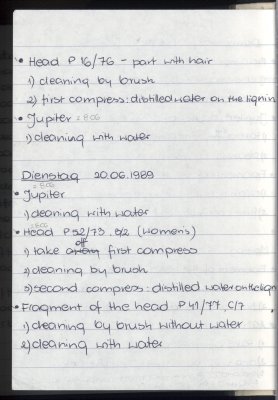 • Head P 16/76 - part with hair
1) cleaning by brush
2) first compress: distilled water on the lignin
• Jupiter = 806
1) cleaning with water
Dienstag 20.06.1989
= 806
• Jupiter
1) cleaning with water
= 806
• Head P 52/73 B/2 (women's)
1) take off first compress
2) cleaning by brush
3) second compress: distilled water on the lignin
• Fragment of the head P 41/77, C/7
1) cleaning by brush without water
2) cleaning with water